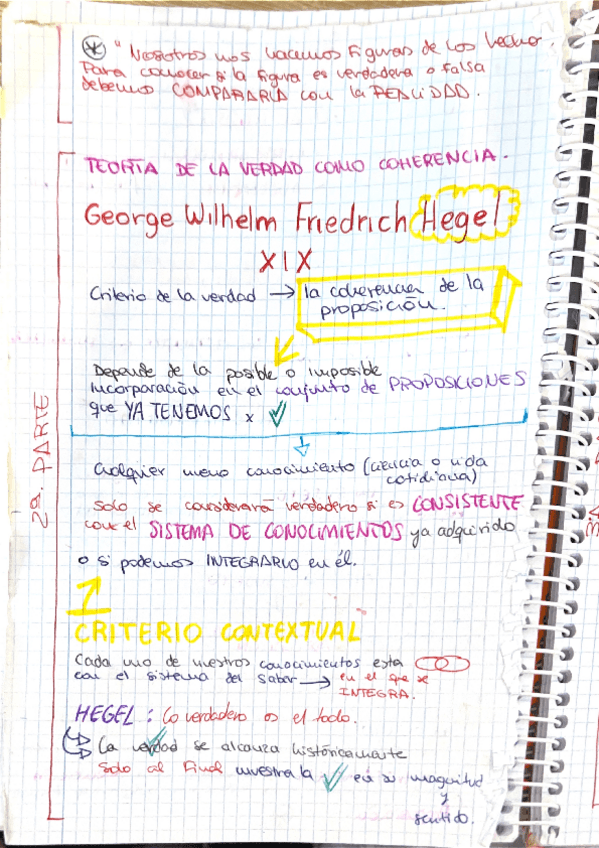 "Nosotros nos hacemos figuras de los hechos.
Para conocer si la figura es verdadera o falsa
debemos COMPARARLA con la REALIDAD.
TEORÍA DE LA VERDAD COMO COHERENCIA.
George Wilhelm Friedrich Hegel
XIX
Criterio de la verdad → la coherencia de la
proposición.
Depende de la posible o imposible
incorporación en el conjunto de PROPOSICIONES
que YA TENEMOS x ✓
2ª. PARTE
Cualquier nuevo conocimiento (ciencia o vida
cotidiana)
Solo se considerará verdadero si es CONSISTENTE
con el SISTEMA DE CONOCIMIENTOS ya adquirido
o si podemos INTEGRARLO en él.
1
CRITERIO CONTEXTUAL
Cada uno de nuestros conocimientos esta
con el sistema del saber → en el que se
INTEGRA.
HEGEL: Lo verdadero es el todo.
La verdad se alcanza históricamente
Solo al final muestra la ✓ en su magnitud
y
sentido.